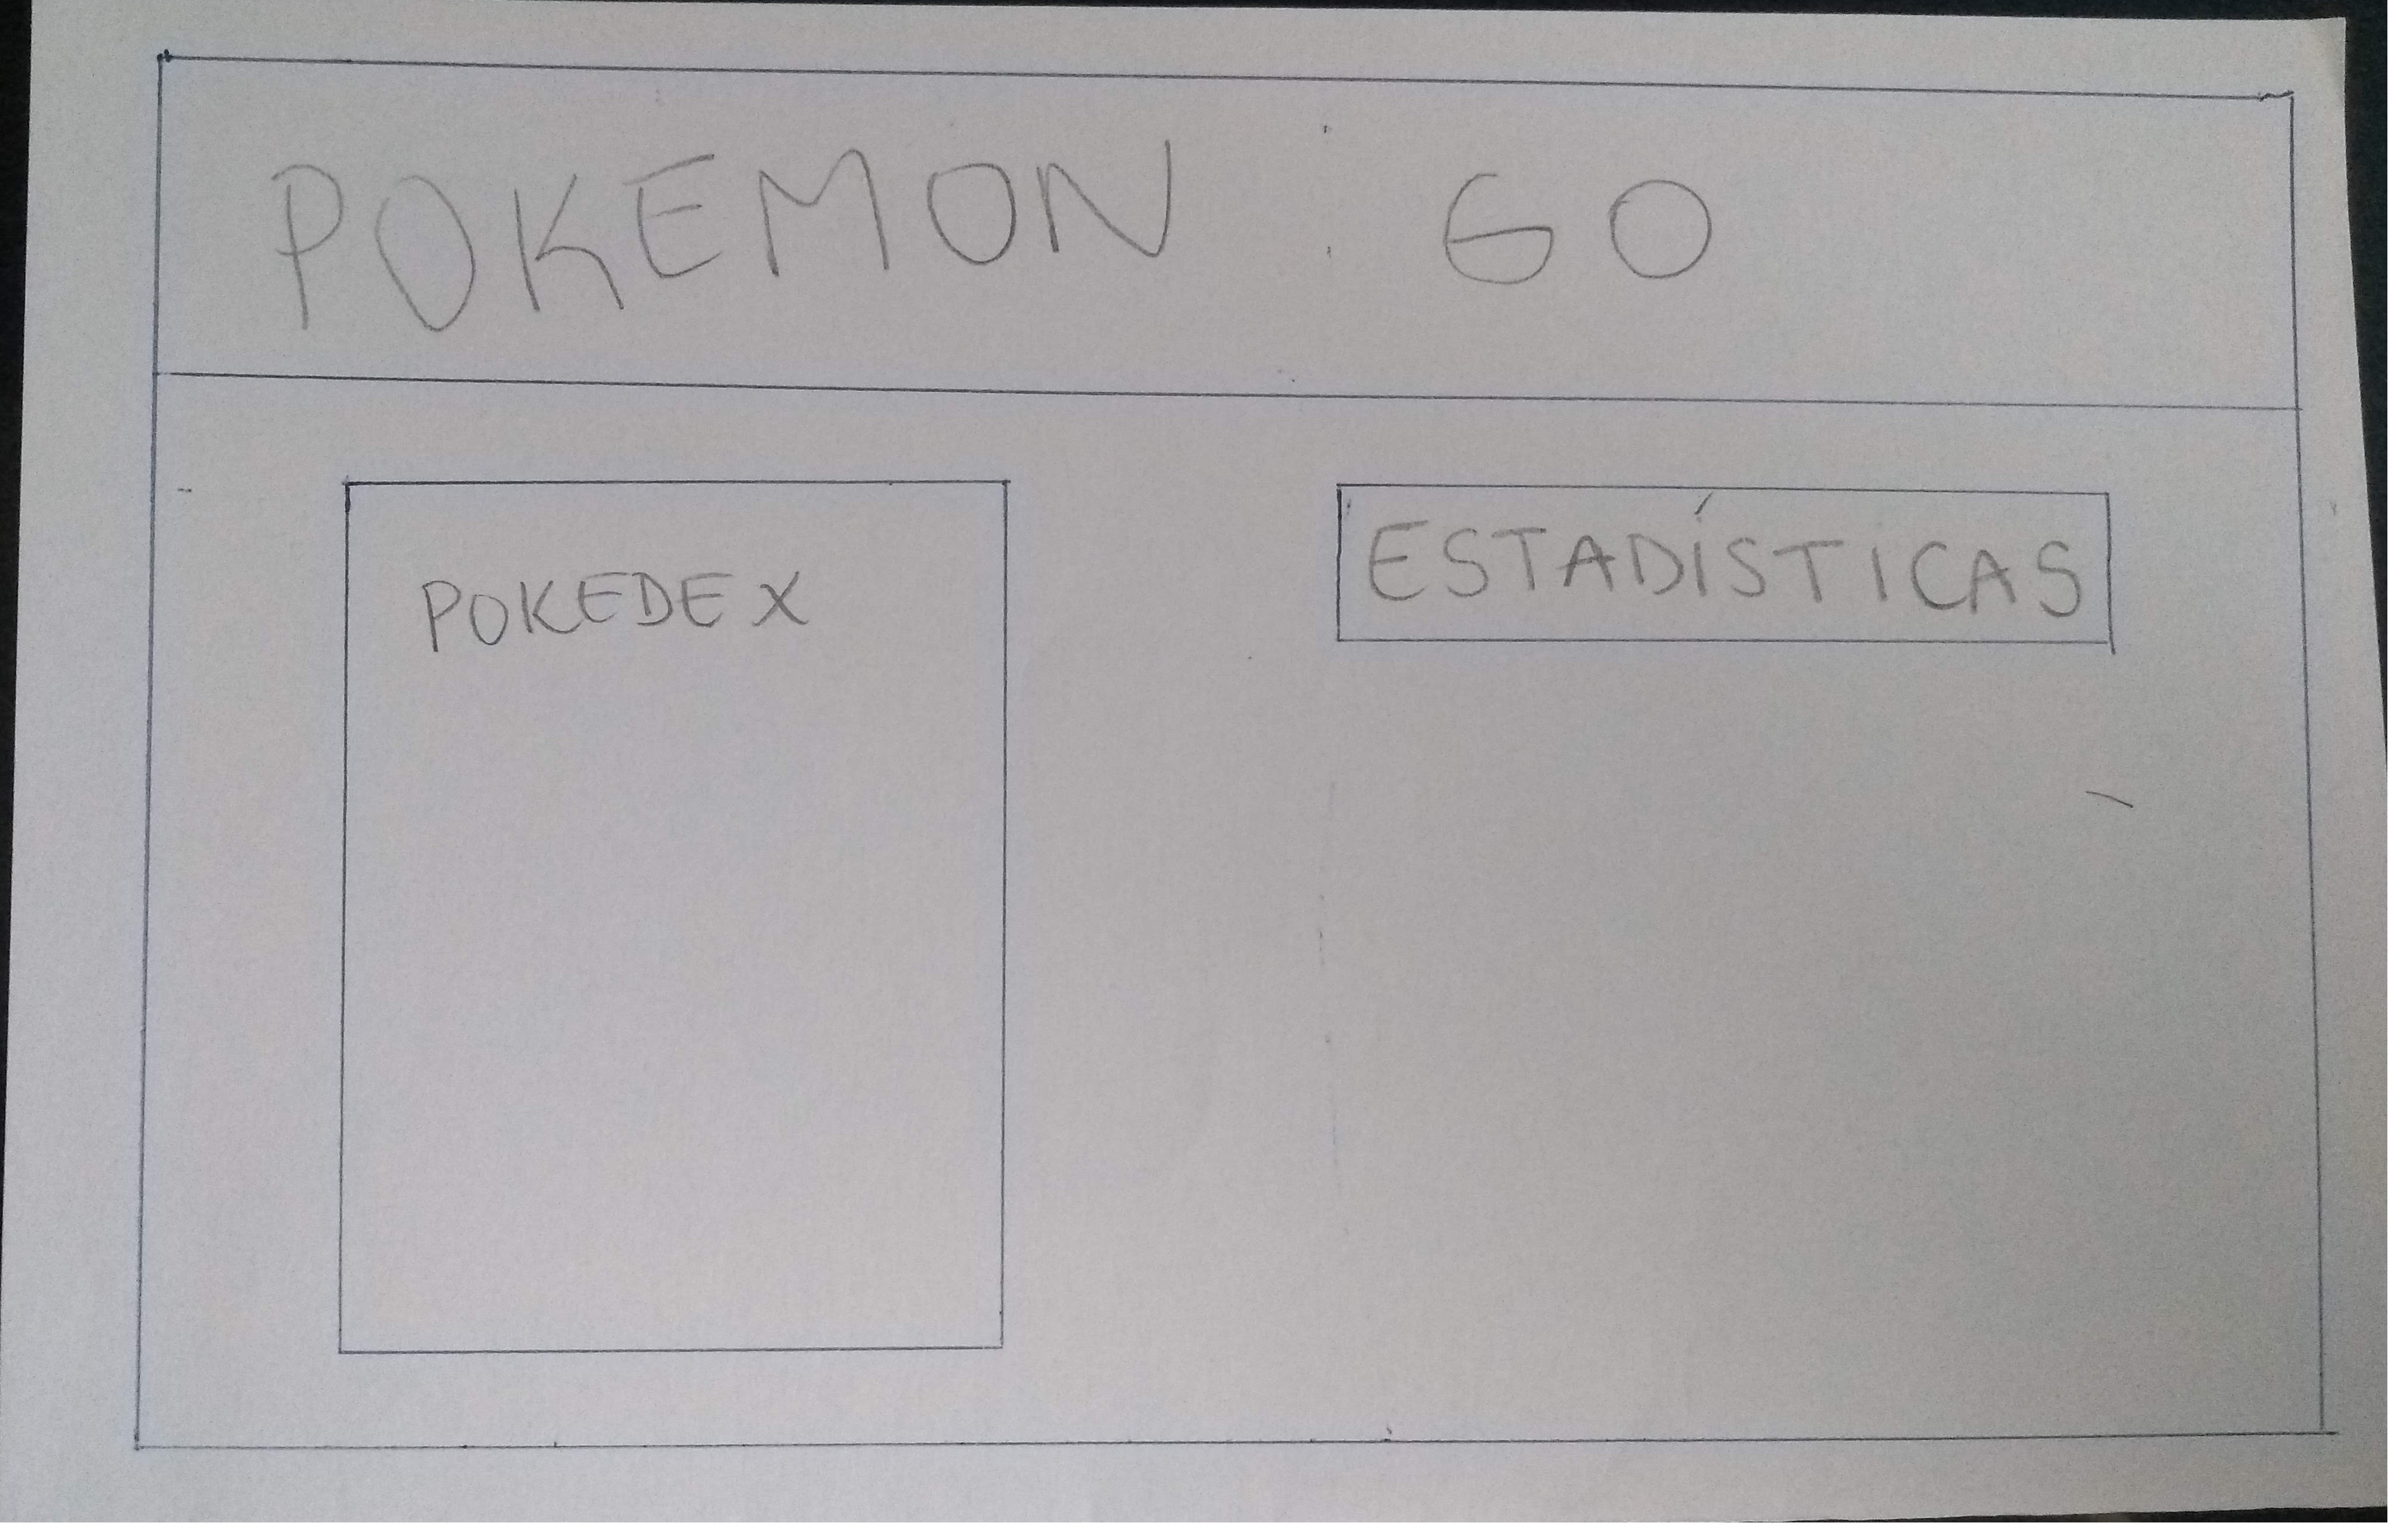 POKEMON GO
POKEDEX
ESTADÍSTICAS